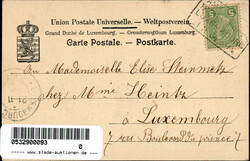 Union Postale Universelle. – Weltpostverein.
Grand Duché de Luxembourg. – Grossherzogthum Luxemburg.
Carte Postale. – Postkarte.
Mademoiselle Elise Steinmetz
chez Mme Heintz
à Luxembourg
(rue Boulevard du prince)
0532900093
0
www.stade-auktionen.de